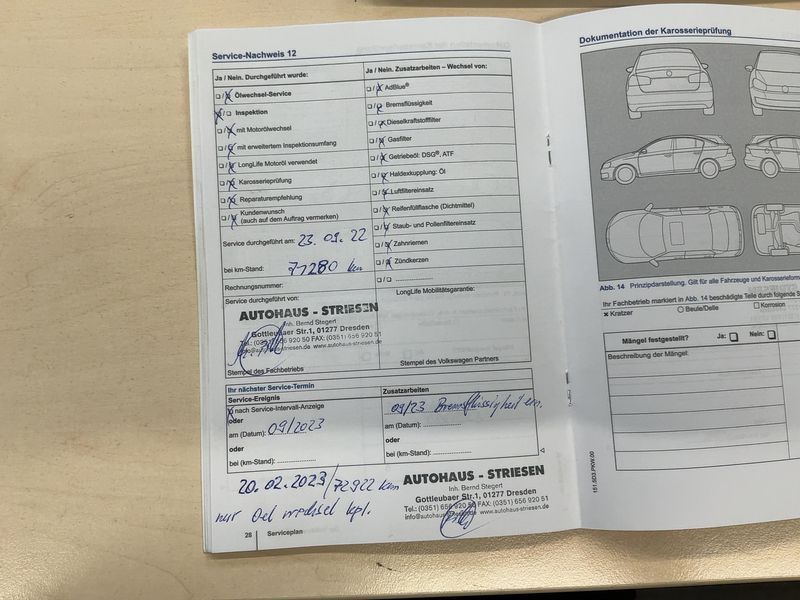 Service-Nachweis 12
Ja / Nein. Durchgeführt wurde:
Ölwechsel-Service
Inspektion
mit Motorölwechsel
mit erweitertem Inspektionsumfang
LongLife Motoröl verwendet
Karosserieprüfung
Reparaturempfehlung
Kundenwunsch
(auch auf dem Auftrag vermerken)
Service durchgeführt am: 23.09.22
bei km-Stand: 71280 km
Rechnungsnummer:
Service durchgeführt von:
AUTOHAUS - STRIESEN
Inh. Bernd Stegert
Gottleubaer Str.1, 01277 Dresden
Tel.: (0351) 656 920 50 FAX: (0351) 656 920 51
info@autohaus-striesen.de www.autohaus-striesen.de
Stempel des Fachbetriebs
Ja / Nein. Zusatzarbeiten – Wechsel von:
AdBlue®
Bremsflüssigkeit
Dieselkraftstofffilter
Gasfilter
Getriebeöl: DSG®, ATF
Haldexkupplung: Öl
Luftfiltereinsatz
Reifenfüllflasche (Dichtmittel)
Staub- und Pollenfiltereinsatz
Zahnriemen
Zündkerzen
LongLife Mobilitätsgarantie:
Stempel des Volkswagen Partners
Ihr nächster Service-Termin
Service-Ereignis
nach Service-Intervall-Anzeige
oder
am (Datum): 09/2023
oder
bei (km-Stand):
Zusatzarbeiten
09/23 Bremsflüssigkeit ern.
am (Datum):
oder
bei (km-Stand):
20.02.2023/72922 km
nur Oel wechsel kpl.
AUTOHAUS - STRIESEN
Inh. Bernd Stegert
Gottleubaer Str.1, 01277 Dresden
Tel.: (0351) 656 920 50 FAX: (0351) 656 920 51
info@autohaus-striesen.de www.autohaus-striesen.de
28 Serviceplan
Dokumentation der Karosserieprüfung
Abb. 14 Prinzipdarstellung. Gilt für alle Fahrzeuge und Karosserieform
Ihr Fachbetrieb markiert in Abb. 14 beschädigte Teile durch folgende S
Kratzer Beule/Delle Korrosion
Mängel festgestellt? Ja: Nein:
Beschreibung der Mängel:
151.5D3.PKW.00